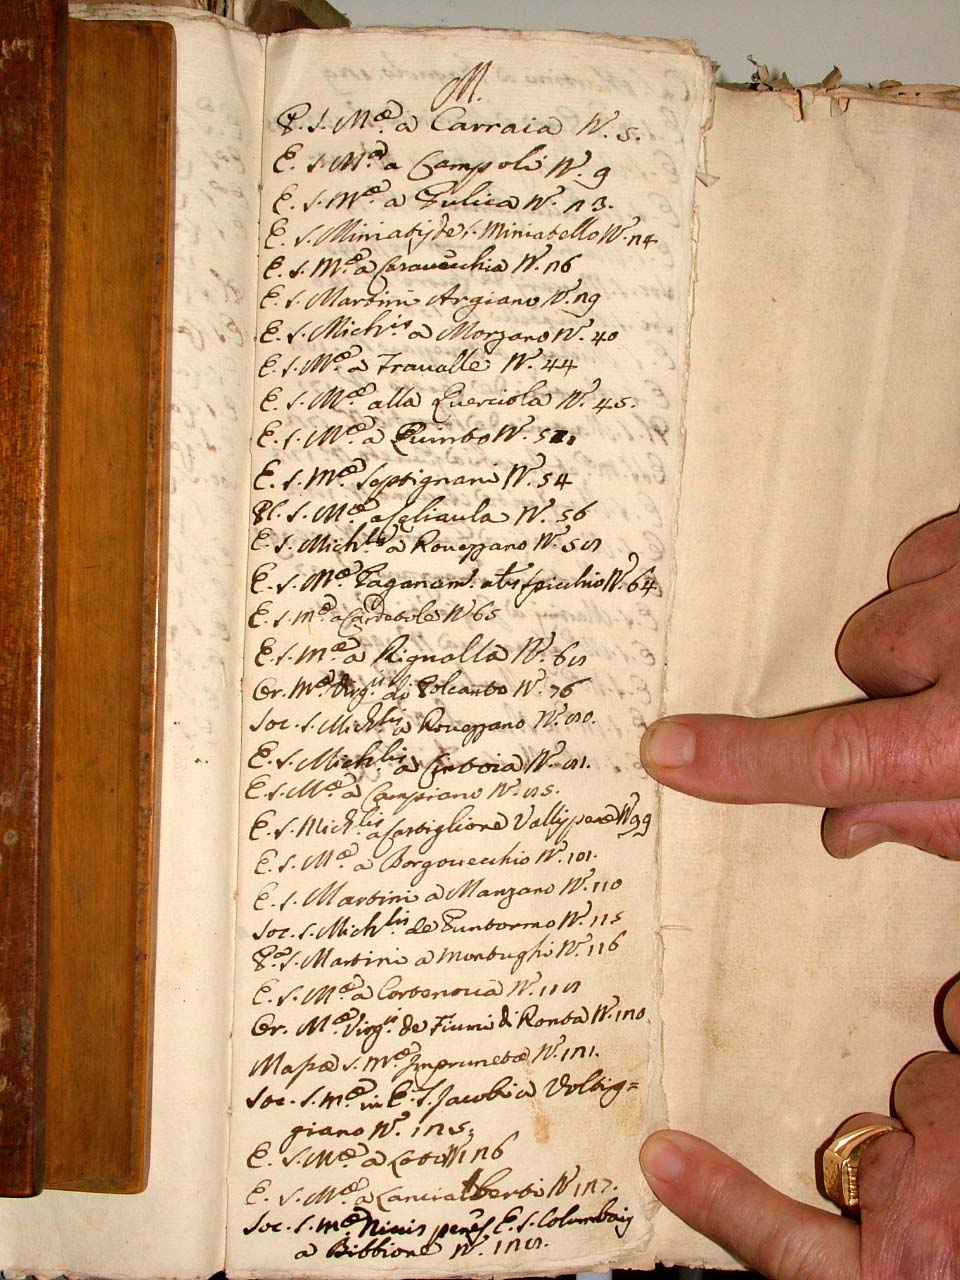 M.
P. S. M.æ à Carraia N. 5.
E. S. M.æ a Campoli N. 9
E. S. M.æ a Pulica N. 23.
E. S. Miniatis de S. Miniatello N. 24
E. S. M.æ a Casavecchia N. 26
E. S. Martini Argiano N. 29
E. S. Mich.is a Morzano N. 40
E. S. M.æ a Travalle N. 44
E. S. M.æ alla Querciola N. 45.
E. S. M.æ a Quinto N.
E. S. M.æ Septignani N. 54
S. M.æ a Celiaula N. 56
E. S. Mich.lis a Rovezzano N. 58
E. S. M.æ N. 64
E. S. M.æ a N. 65
E. S. M.æ a Rignalla N. 68
Or. M.æ Virg.is di Polcanto N. 76
Soc. S. Mich.lis a Rovezzano N. 80.
E. S. Michlis a N. 81.
E. S. M.æ a Campiano N. 85.
E. S. Mich.lis a Castiglione Vallis N. 99
E. S. M.æ a Borgovecchio N. 101.
E. S. Martini a Manzano N. 110
Soc. S. Mich.lis de Puntormo N. 115
P. S. Martini a Montughi N. 116
E. S. M.æ a Cortenova N. 118
Or. M.æ Virg.is de Fiumi di Ronta N. 120
Mass S. M.æ Imprunetæ N. 121.
Soc. S. M.æ in E. S. Jacobi a Voltig=
giano N. 125.
E. S. M.æ a N. 126
E. S. M.æ a Lancialberti N. 127.
Soc. S. M.æ Nivis penes E. S. Columbani
a Bibbione N. 128.